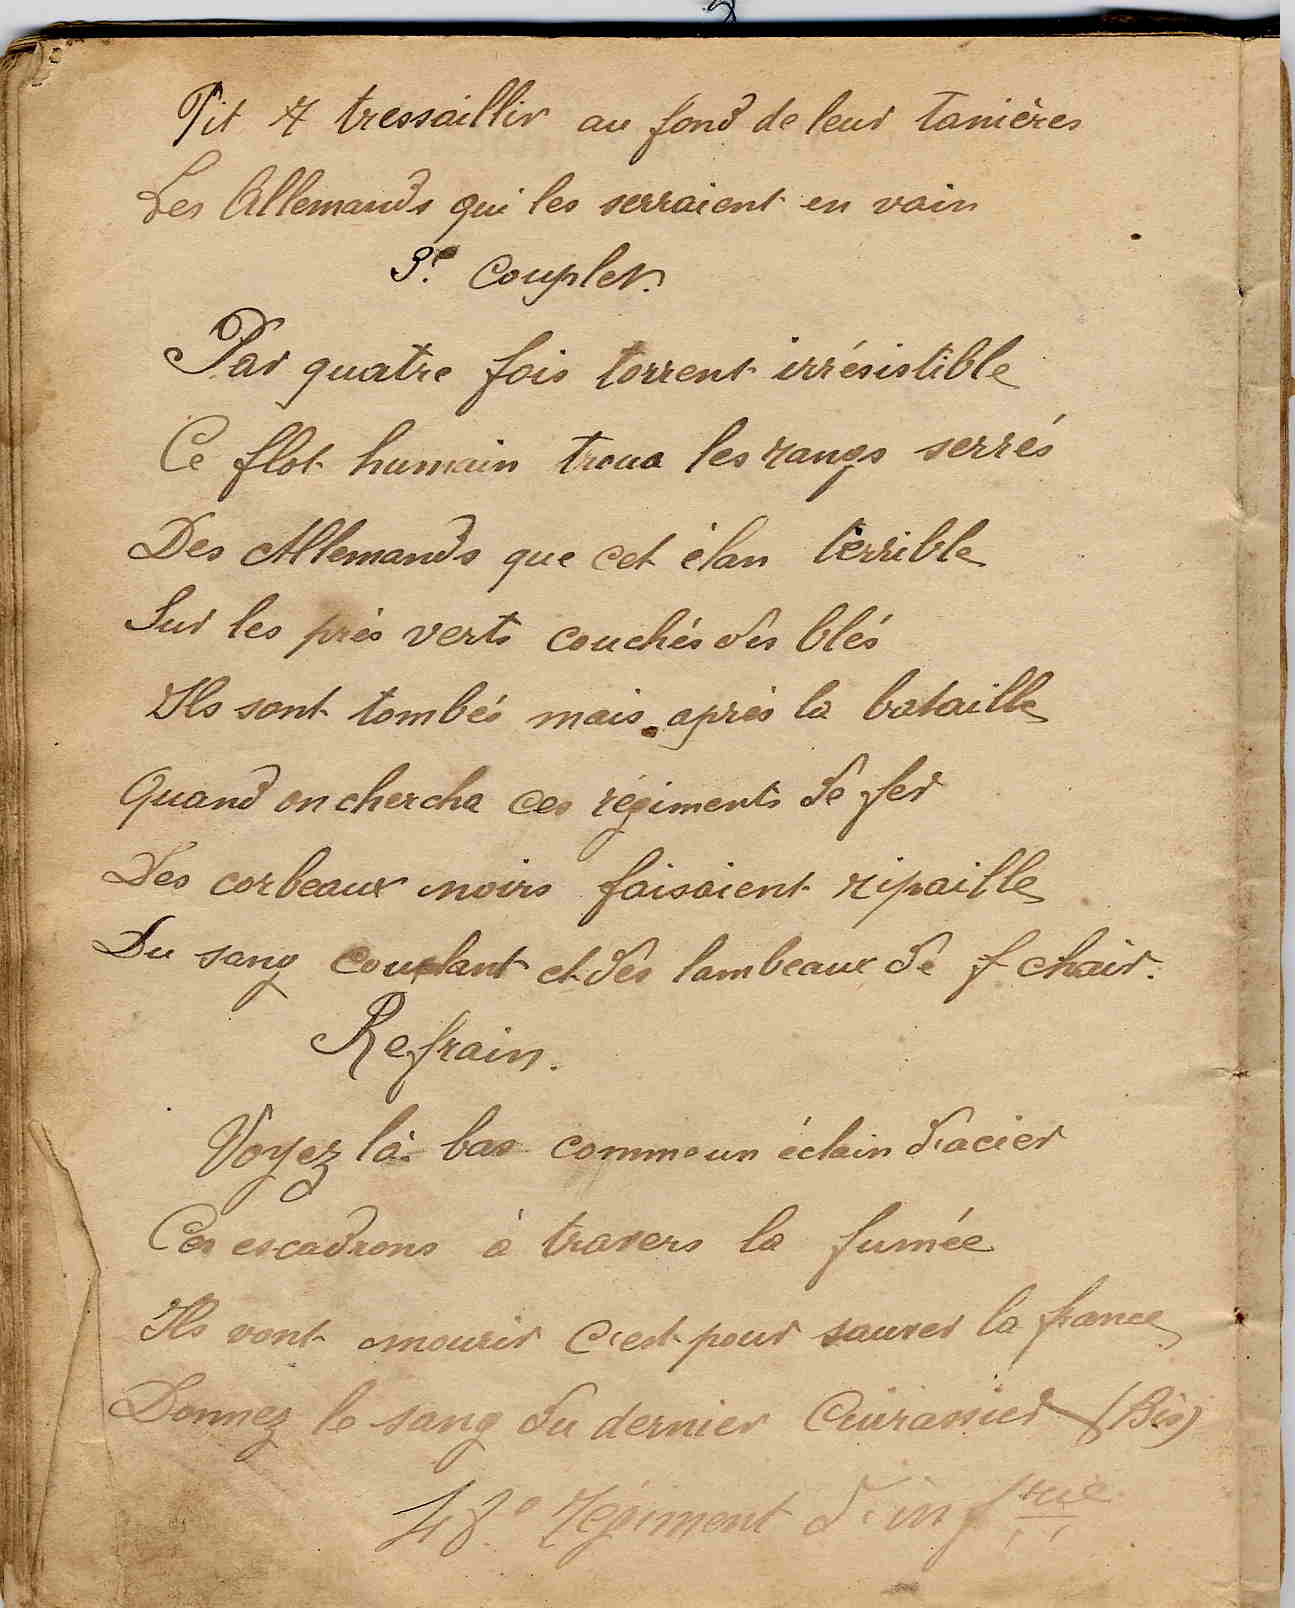 Fit tressaillir au fond de leur tanières
Les Allemands qui les serraient en vain
3e Couplet.
Par quatre fois torrent irrésistible
Ce flot humain troua les rangs serrés
Des Allemands que cet élan terrible
Sur les près verts couchés des blés
Ils sont tombés mais après la bataille
Quand on chercha ces régiments de fer
Des corbeaux noirs faisaient ripaille
Du sang coulant et des lambeaux de f chair.
Refrain.
Voyez là-bas comme un éclain d'acier
Ces escadrons à travers la fumée
Ils vont mourir c'est pour sauver la france
Donnez le sang du dernier Cuirassier (Bis)
48e régiment d'infrie